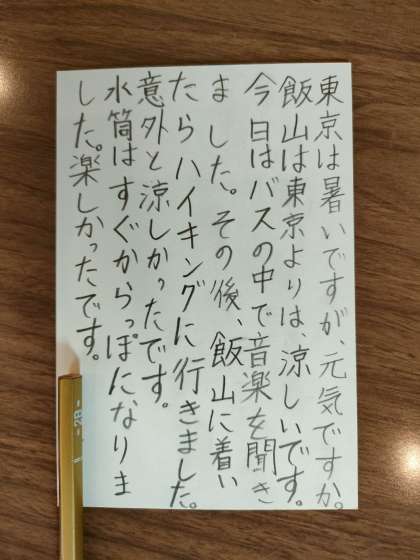 東京は暑いですが、元気ですか。
飯山は東京よりは、涼しいです。
今日はバスの中で音楽を聞き
ました。その後、飯山に着い
たらハイキングに行きました。
意外と涼しかったです。
水筒はすぐからっぽになりま
した。楽しかったです。
-2B-